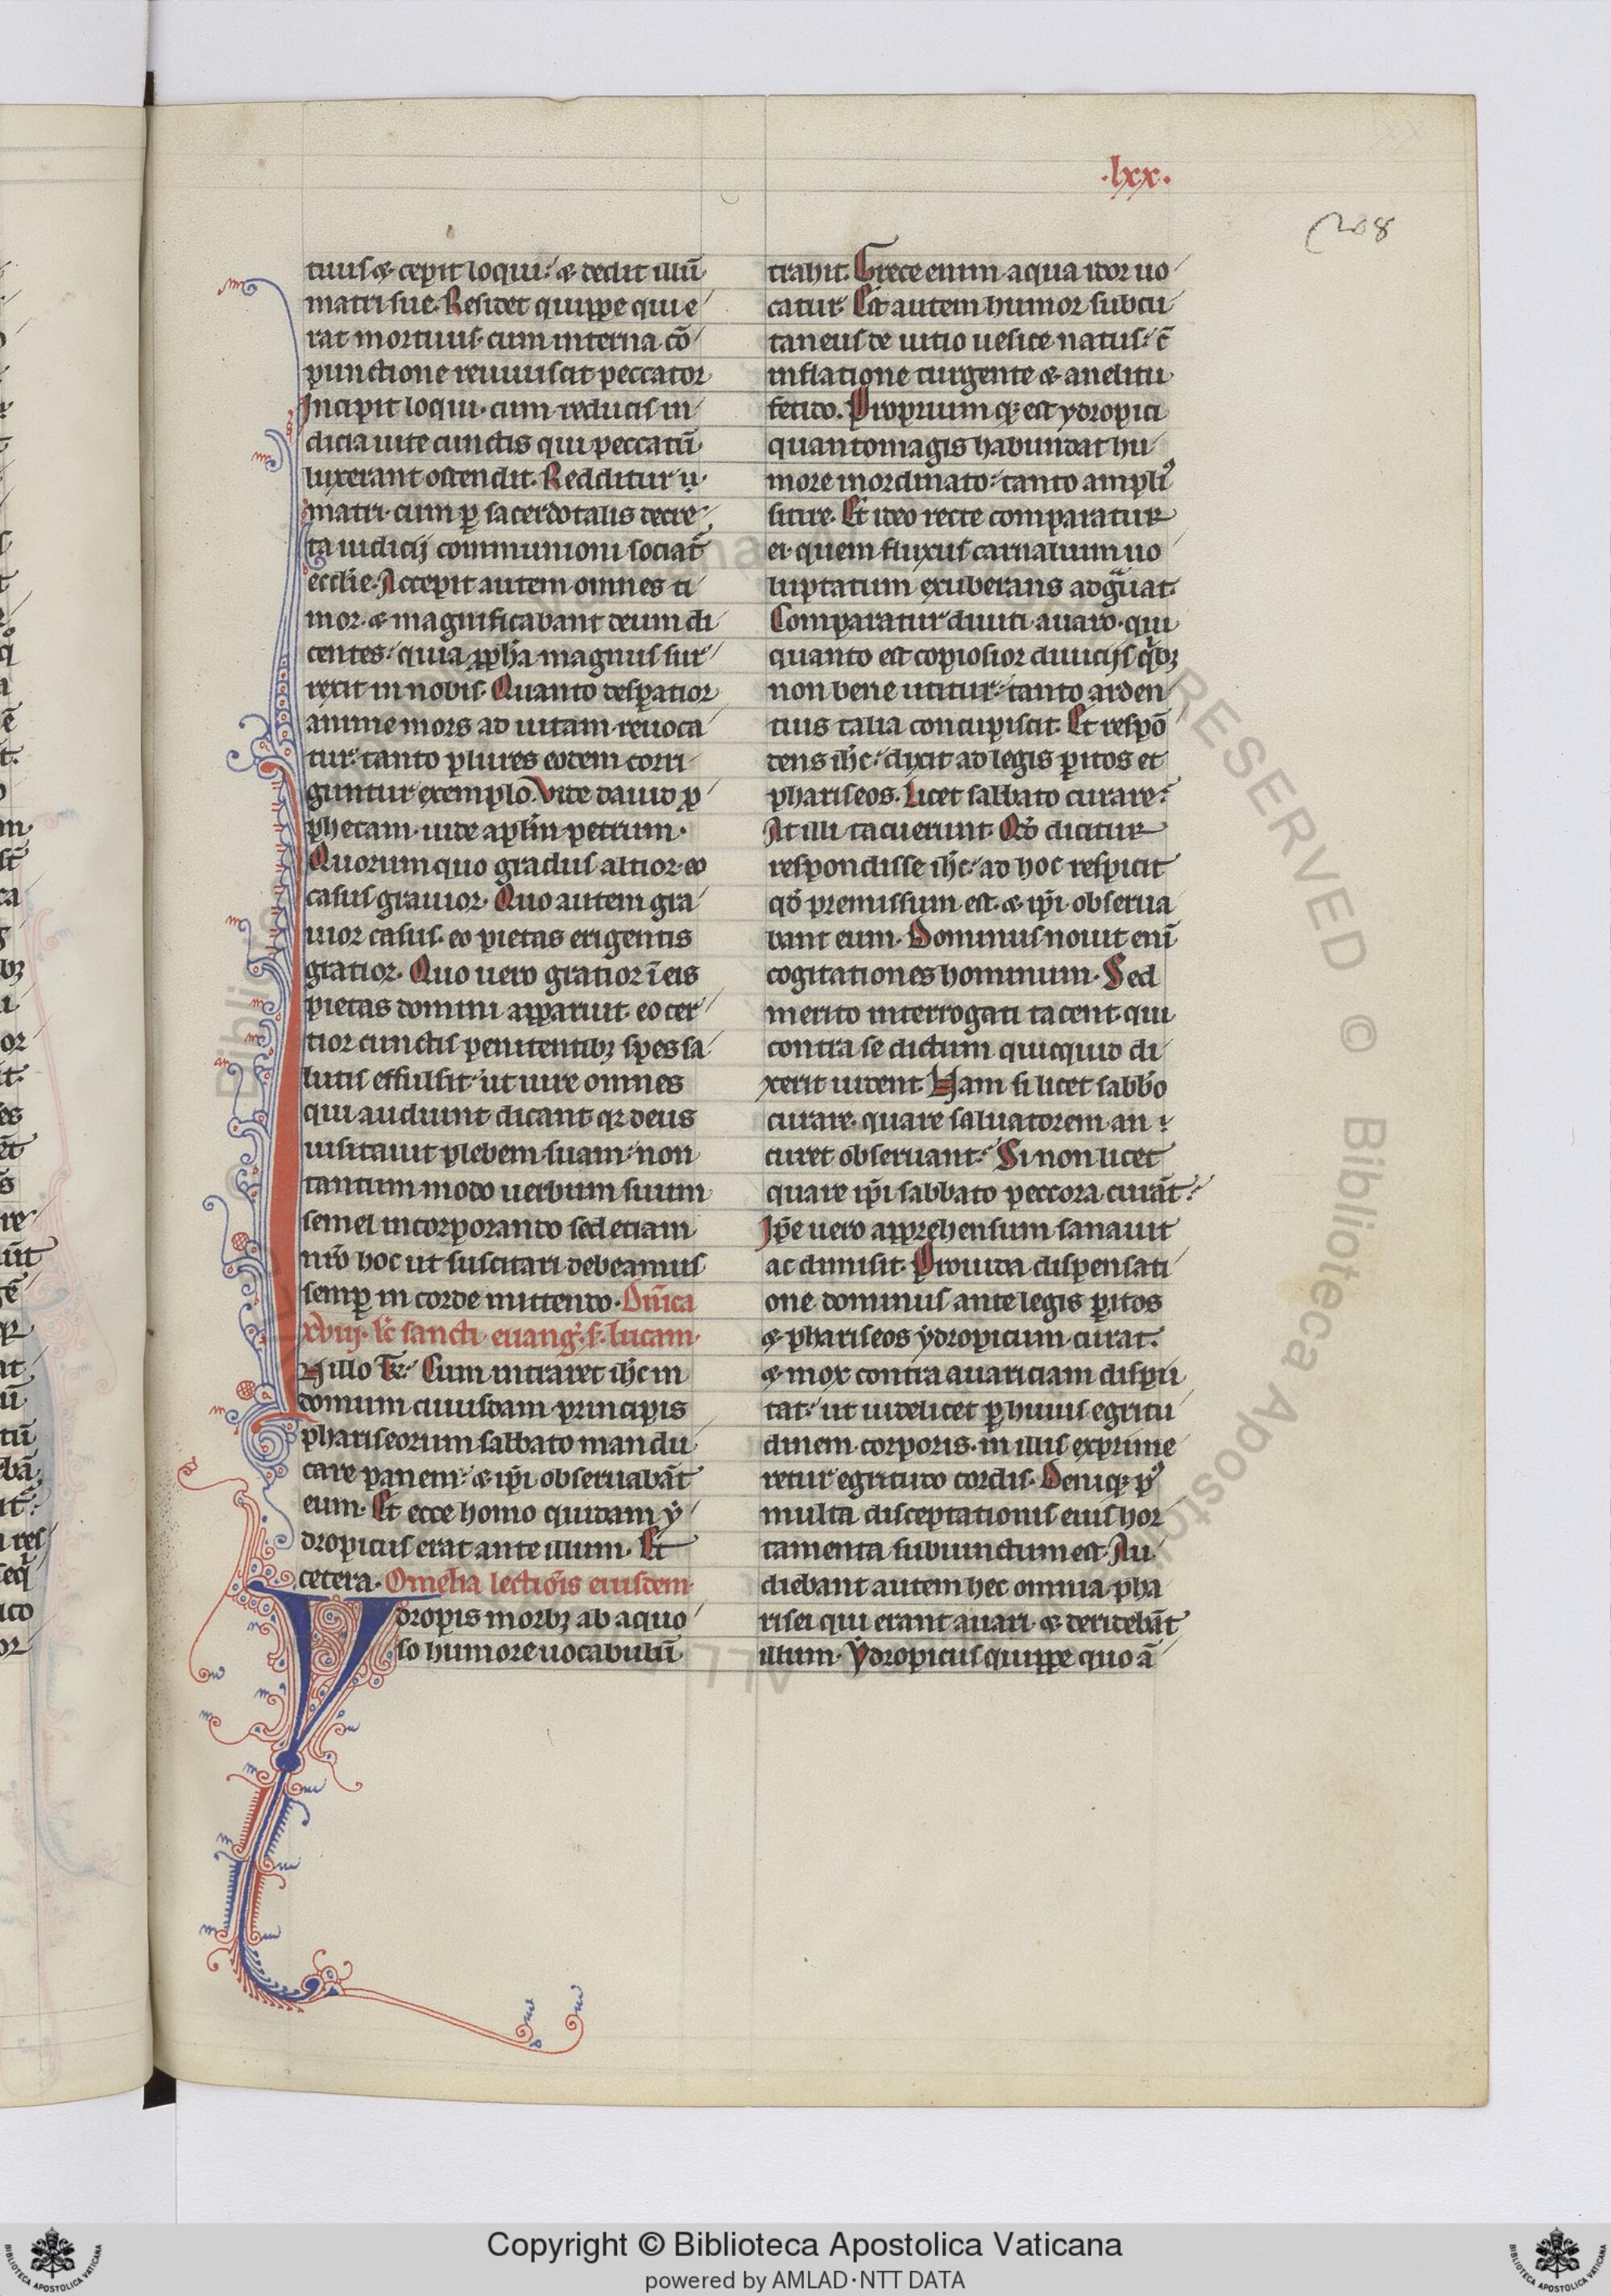 .lxx.
208
tuus & cepit loqui. & dedit illū
matri sue. Residet quippe qui e
rat mortuus. cum interna cō
punctione reuiuiscit peccator
Incipit loqui. cum reducis in
dicia uite cunctis qui peccatū
luxerant ostendit. Redditur ů.
matri. cum ꝑ sacerdotalis decre
ta iudicij communioni sociat᷑
ecclie. Accepit autem omnes ti
mor. & magnificabant deum di
centes. quia ꝓpha magnus sur
rexit in nobis. Quanto desꝑatior
anime mors ad uitam reuoca
tur. tanto plures eodem corri
guntur exemplo. Vide dauid ꝓ
phetam. uide aplm petrum.
Quorum quo gradus altior. eo
casus grauior. Quo autem gra
uior casus. eo pietas erigentis
gratior. Quo uero gratior ī eis
pietas domini apparuit. eo cer
tior cunctis penitentibꝫ spes sa
lutis effulsit. ut iure omnes
qui audiunt dicant qꝛ deus
uisitauit plebem suam. non
tantum modo uerbum suum
semel incorporando sed etiam
nrō hoc ut suscitari debeamus
semꝑ in corde mittendo. Dn̄ica
xviij. lc̄ sancti euang. s. lucam.
N illo t̄r. Cum intraret ihc in
domum cuiusdam principis
phariseorum sabbato mandu
care panem. & ip̄i obseruabāt
eum. Et ecce homo quidam ẏ
dropicus erat ante illum. Et
cetera. Omelia lectiōis eiusdem.
Ydropis morbꝫ ab aquo
so humore uocabulū
trahit. Grece enim aqua idor uo
catur. Est autem humor subcu
taneus de uitio uesice natus. c̄
inflatione turgente & anelitu
fetido. Proprium qꝫ est ydropici
quantomagis habundat hu
more inordinato. tanto ampliꝰ
sitire. Et ideo recte comparatur
ei. quem fluxus carnalium uo
luptatum exuberans adgͣuat.
Comparatur diuiti auaro. qui
quanto est copiosior diuicijs qͥbꝫ
non bene utitur. tanto arden
tius talia concupiscit. Et respō
dens ihc. dixit ad legis ꝑitos et
phariseos. Licet sabbato curare?
At illi tacuerunt. Qd̄ dicitur
respondisse ihc. ad hoc respicit
qd̄ premissum est. & ip̄i obserua
bant eum. Dominus nouit eni᷑
cogitationes hominum. Sed
merito interrogati tacent. qui
contra se dictum quicquid di
xerit uident. Nam si licet sabbō
curare. quare saluatorem an
curet obseruant? Si non licet
quare ip̄i sabbato peccora curāt?
Ip̄e uero apprehensum sanauit
ac dimisit. Prouida dispensati
one dominus ante legis ꝑitos
& phariseos ẏdropicum curat.
& mox contra auariciam dispu
tat. ut uidelicet ꝑ huius egritu
dinem corporis. in illis exprime
retur egritudo cordis. Deniqꝫ pꝰ
multa disceptationis eius hor
tamenta subiunctum est. Au
diebant autem hec omnia pha
risei qui erant auari. & deridebāt
illum. Ydropicus quippe quo ā
Copyright © Biblioteca Apostolica Vaticana
powered by AMLAD·NTT DATA